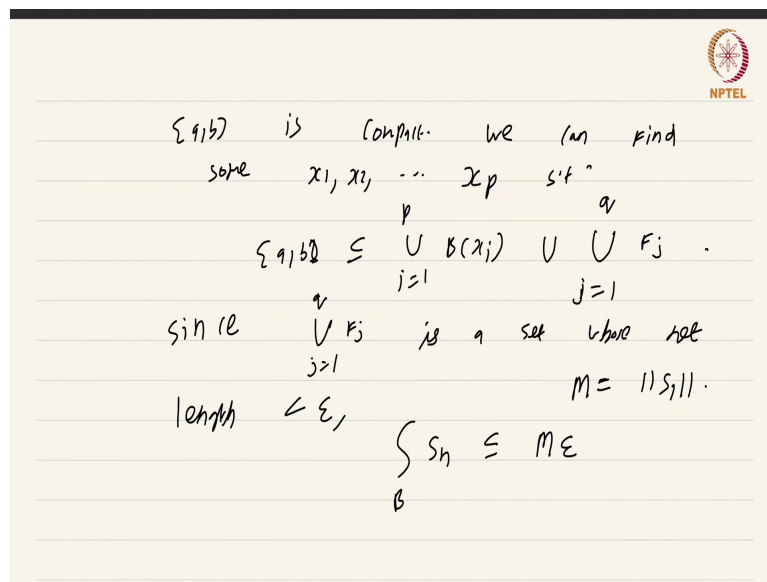 NPTEL
[a,b] is compact. We can find
some x1, x2, ... xp s.t.
[a,b] ⊆ ⋃_{j=1}^{p} B(xj) ∪ ⋃_{j=1}^{q} Fj .
since ⋃_{j=1}^{q} Fj is a set whose net
M = ||S1||.
length < ε,
∫_B Sn ≤ Mε